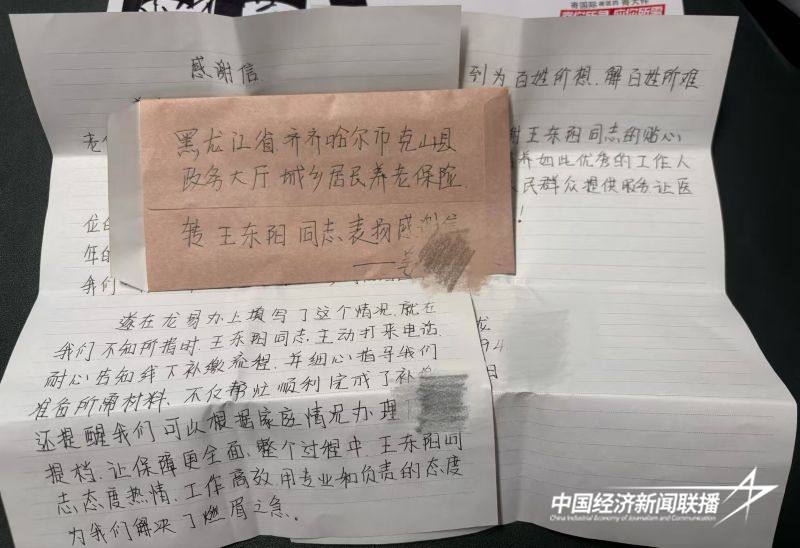 感谢信
到为百姓所想.解百姓所难
谢王东阳同志的贴心
养如此优秀的工作人
民群众提供服务让医
!
黑龙江省齐齐哈尔市克山县
政务大厅 城乡居民养老保险
转 王东阳 同志表扬感谢信
位的
年的
我们
遂在龙易办上填写了这个情况.就在
我们不知所措时 王东阳同志.主动打来电话
耐心告知线下补缴流程.并细心指导我们
准备所需材料、不仅帮忙顺利完成了补
还提醒我们可以根据家庭情况办理
提档.让保障更全面、整个过程中.王东阳同
志态度热情、工作高效用专业和负责的态度
为我们解决了燃眉之急。
日
中国经济新闻联播
China Industrial Economy of Journalism and Communication